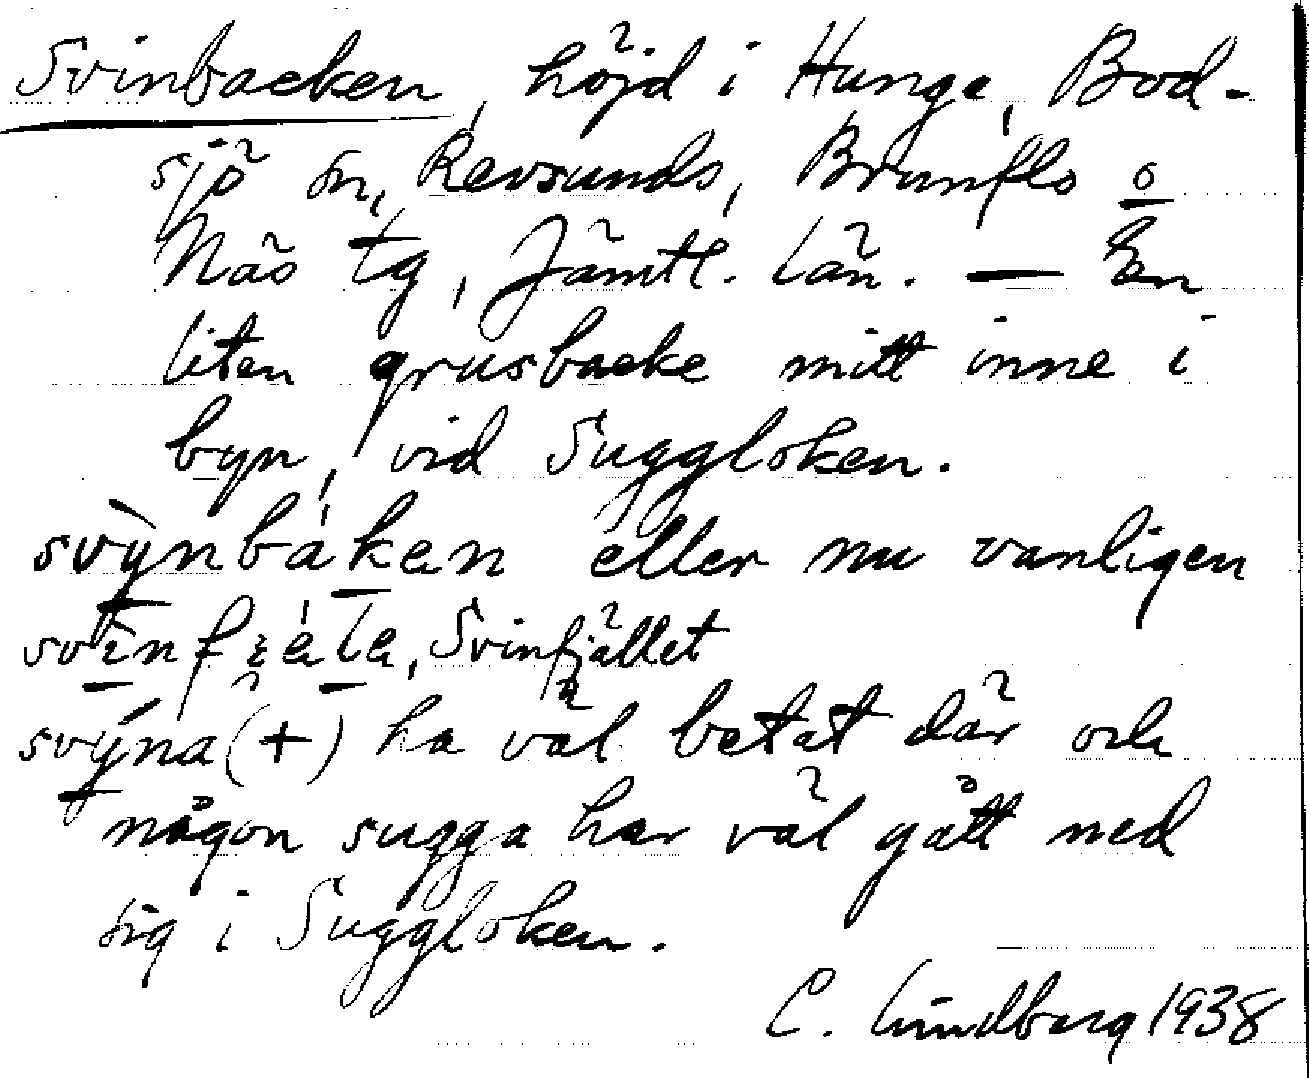 Svinbacken, höjd i Hunge, Bod-
sjö sn, Revsunds, Brunflo o
Näs tg, Jämtl. län. — En
liten grusbacke mitt inne i
byn, vid Suggloken.
svỳnbákɐn eller nu vanligen
Svinfjället
svýna(+) ha väl betat där och
någon sugga har väl gått ned
sig i Suggloken.
C. Lindberg 1938